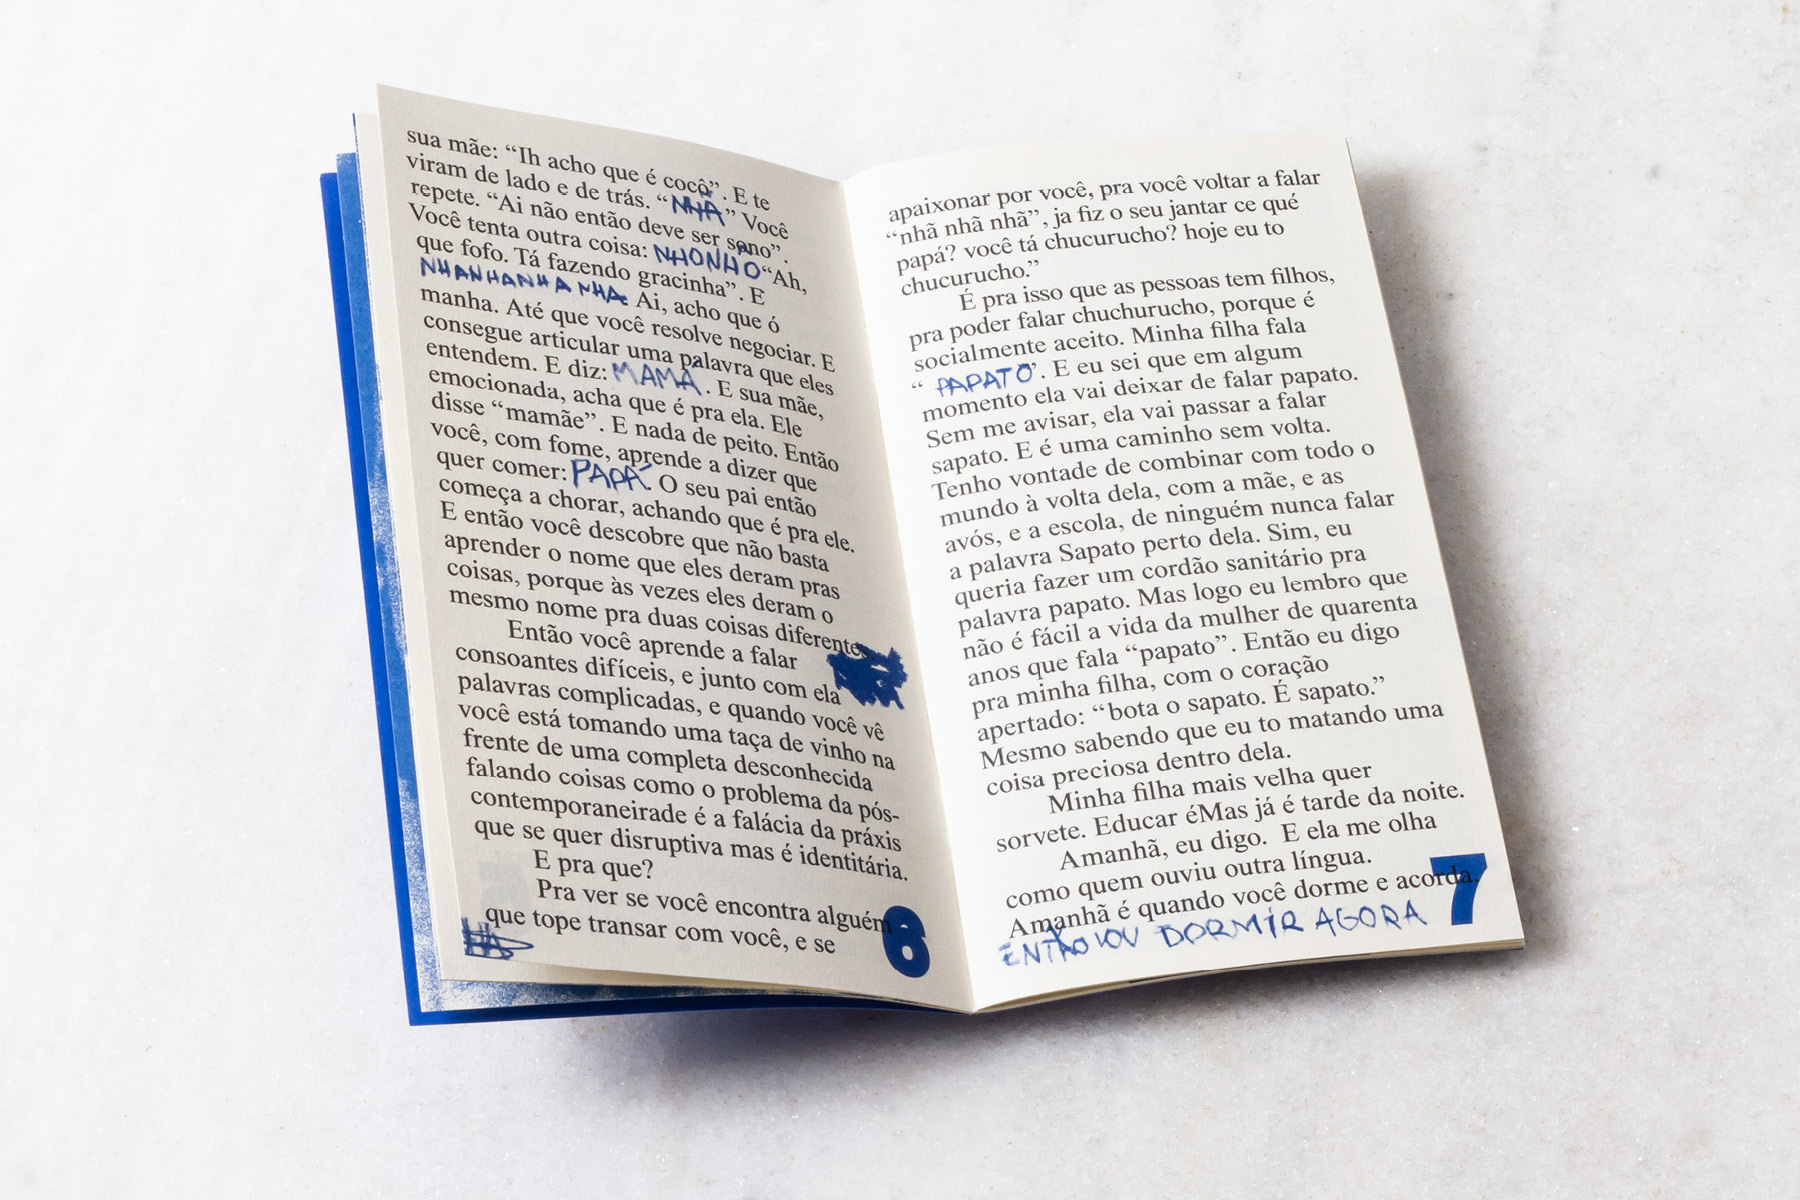 sua mãe: “Ih acho que é cocô”. E te
viram de lado e de trás. “NHÃ” Você
repete. “Ai não então deve ser sono”.
Você tenta outra coisa: NHONHO “Ah,
que fofo. Tá fazendo gracinha”. E
NHANHANHANHA Ai, acho que ó
manha. Até que você resolve negociar. E
consegue articular uma palavra que eles
entendem. E diz: MAMÁ. E sua mãe,
emocionada, acha que é pra ela. Ele
disse “mamãe”. E nada de peito. Então
você, com fome, aprende a dizer que
quer comer: PAPÁ. O seu pai então
começa a chorar, achando que é pra ele.
E então você descobre que não basta
aprender o nome que eles deram pras
coisas, porque às vezes eles deram o
mesmo nome pra duas coisas diferentes
Então você aprende a falar
consoantes difíceis, e junto com ela
palavras complicadas, e quando você vê
você está tomando uma taça de vinho na
frente de uma completa desconhecida
falando coisas como o problema da pós-
contemporaneirade é a falácia da práxis
que se quer disruptiva mas é identitária.
E pra que?
Pra ver se você encontra alguém
que tope transar com você, e se
6
apaixonar por você, pra você voltar a falar
“nhã nhã nhã”, ja fiz o seu jantar ce qué
papá? você tá chucurucho? hoje eu to
chucurucho.”
É pra isso que as pessoas tem filhos,
pra poder falar chuchurucho, porque é
socialmente aceito. Minha filha fala
“PAPATO”. E eu sei que em algum
momento ela vai deixar de falar papato.
Sem me avisar, ela vai passar a falar
sapato. E é uma caminho sem volta.
Tenho vontade de combinar com todo o
mundo à volta dela, com a mãe, e as
avós, e a escola, de ninguém nunca falar
a palavra Sapato perto dela. Sim, eu
queria fazer um cordão sanitário pra
palavra papato. Mas logo eu lembro que
não é fácil a vida da mulher de quarenta
anos que fala “papato”. Então eu digo
pra minha filha, com o coração
apertado: “bota o sapato. É sapato.”
Mesmo sabendo que eu to matando uma
coisa preciosa dentro dela.
Minha filha mais velha quer
sorvete. Educar éMas já é tarde da noite.
Amanhã, eu digo. E ela me olha
como quem ouviu outra língua.
Amanhã é quando você dorme e acorda.
ENTÃO VOU DORMIR AGORA
7